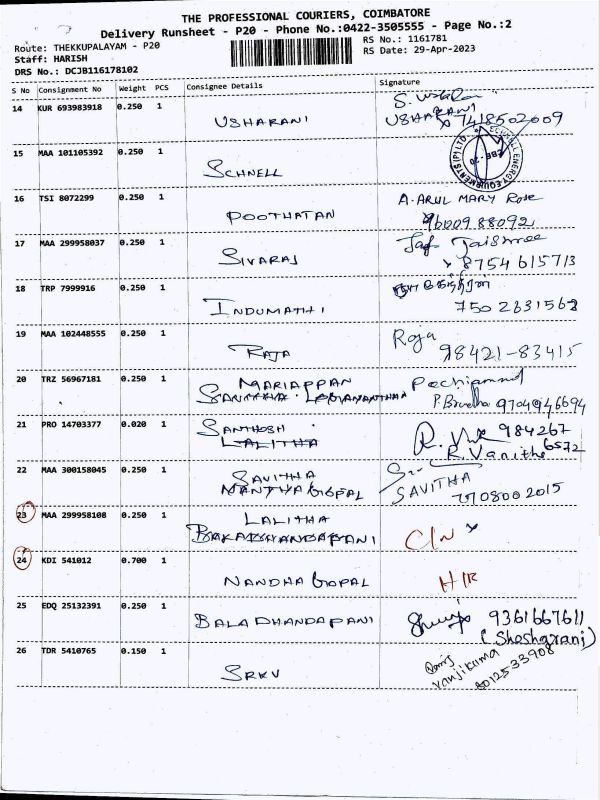 THE PROFESSIONAL COURIERS, COIMBATORE
Delivery Runsheet - P20 - Phone No.:0422-3505555 - Page No.:2
Route: THEKKUPALAYAM - P20
RS No.: 1161781
Staff: HARISH
RS Date: 29-Apr-2023
DRS No.: DCJB116178102
S No Consignment No Weight PCS Consignee Details Signature
14 KUR 693983918 0.250 1 USHARANI
USHARANI 7418502009
15 MAA 101105392 0.250 1 SCHNELL
SCHNELL ENERGY EQUIPMENTS (P) LTD.
16 TSI 8072299 0.250 1 POOTHATAN A. ARUL MARY Rose
9600988092
17 MAA 299958037 0.250 1 SIVARAJ Jaishree
8754615713
18 TRP 7999916 0.250 1 INDUMATHI
7502631562
19 MAA 102448555 0.250 1 RAJA Roja
98421-83415
20 TRZ 56967181 0.250 1 MARIAPPAN
9704946694
21 PRO 14703377 0.020 1 SANTHOSH 984267
LALITHA R. Vanitha 6572
22 MAA 300158045 0.250 1 SAVITHA
NANTHAGOPAL SAVITHA
9708002015
23 MAA 299958108 0.250 1 LALITHA
C/N
24 KDI 541012 0.700 1 NANDHA GOPAL H/R
25 EDQ 25132391 0.250 1 BALA DHANDAPANI 9361667611
(Shesharani)
26 TDR 5410765 0.150 1 SRKV
8012533908